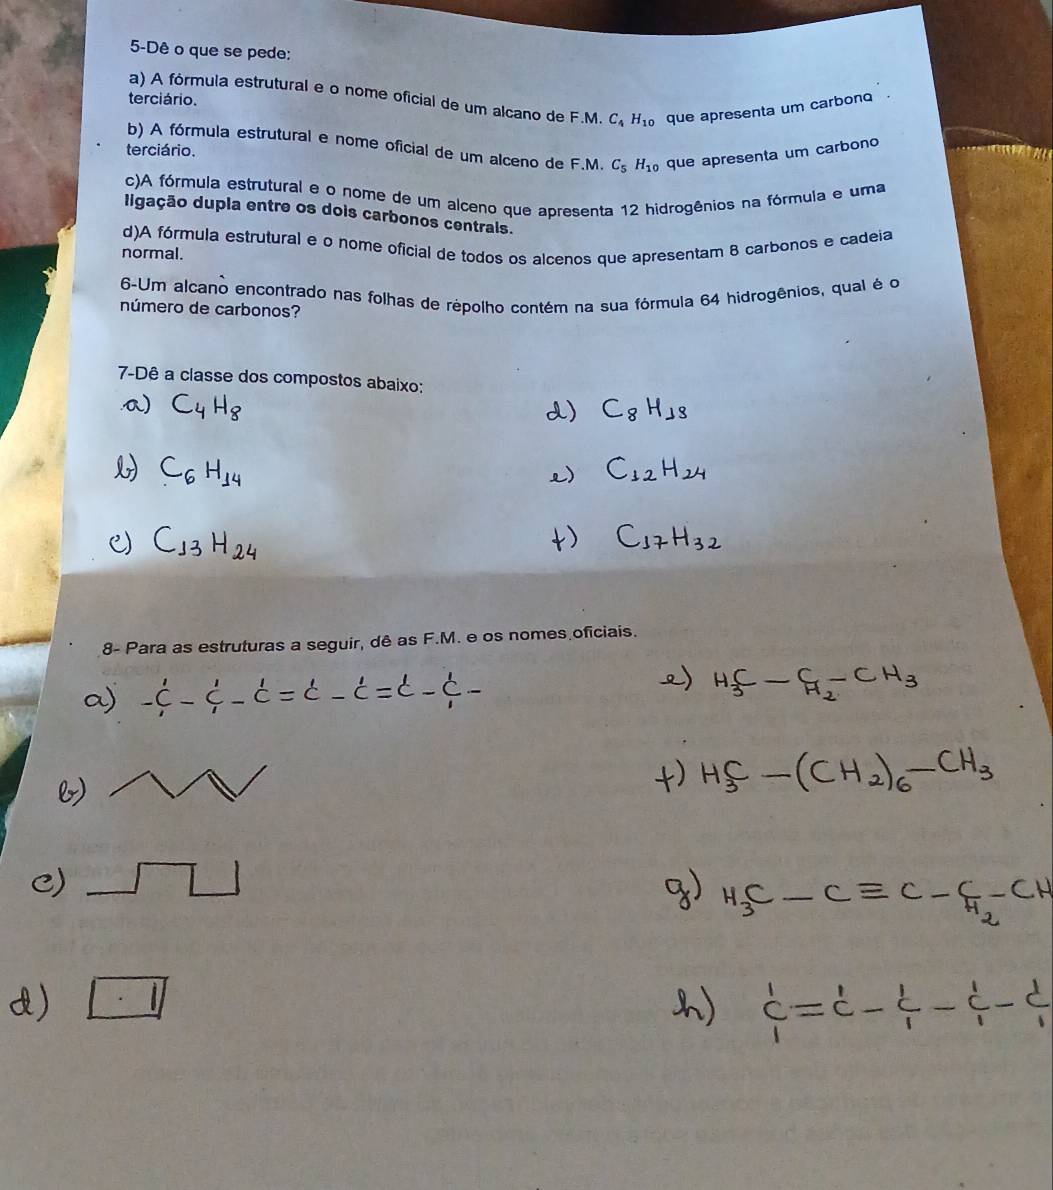 5-Dê o que se pede:
a) A fórmula estrutural e o nome oficial de um alcano de F.M. C₄ H₁₀ que apresenta um carbono
terciário.
b) A fórmula estrutural e nome oficial de um alceno de F.M. C₅ H₁₀ que apresenta um carbono
terciário.
c)A fórmula estrutural e o nome de um alceno que apresenta 12 hidrogênios na fórmula e uma
ligação dupla entre os dois carbonos centrais.
d)A fórmula estrutural e o nome oficial de todos os alcenos que apresentam 8 carbonos e cadeia
normal.
6-Um alcano encontrado nas folhas de repolho contém na sua fórmula 64 hidrogênios, qual é o
número de carbonos?
7-Dê a classe dos compostos abaixo:
a) C₄H₈
d) C₈H₁₈
b) C₆H₁₄
e) C₁₂H₂₄
c) C₁₃H₂₄
f) C₁₇H₃₂
8- Para as estruturas a seguir, dê as F.M. e os nomes oficiais.
a) -C-C-C=C-C=C-C-
e) H₃C-CH₂-CH₃
b)
f) H₃C-(CH₂)₆-CH₃
c)
g) H₃C-C≡C-CH₂-CH
d)
h) C=C-C-C-C